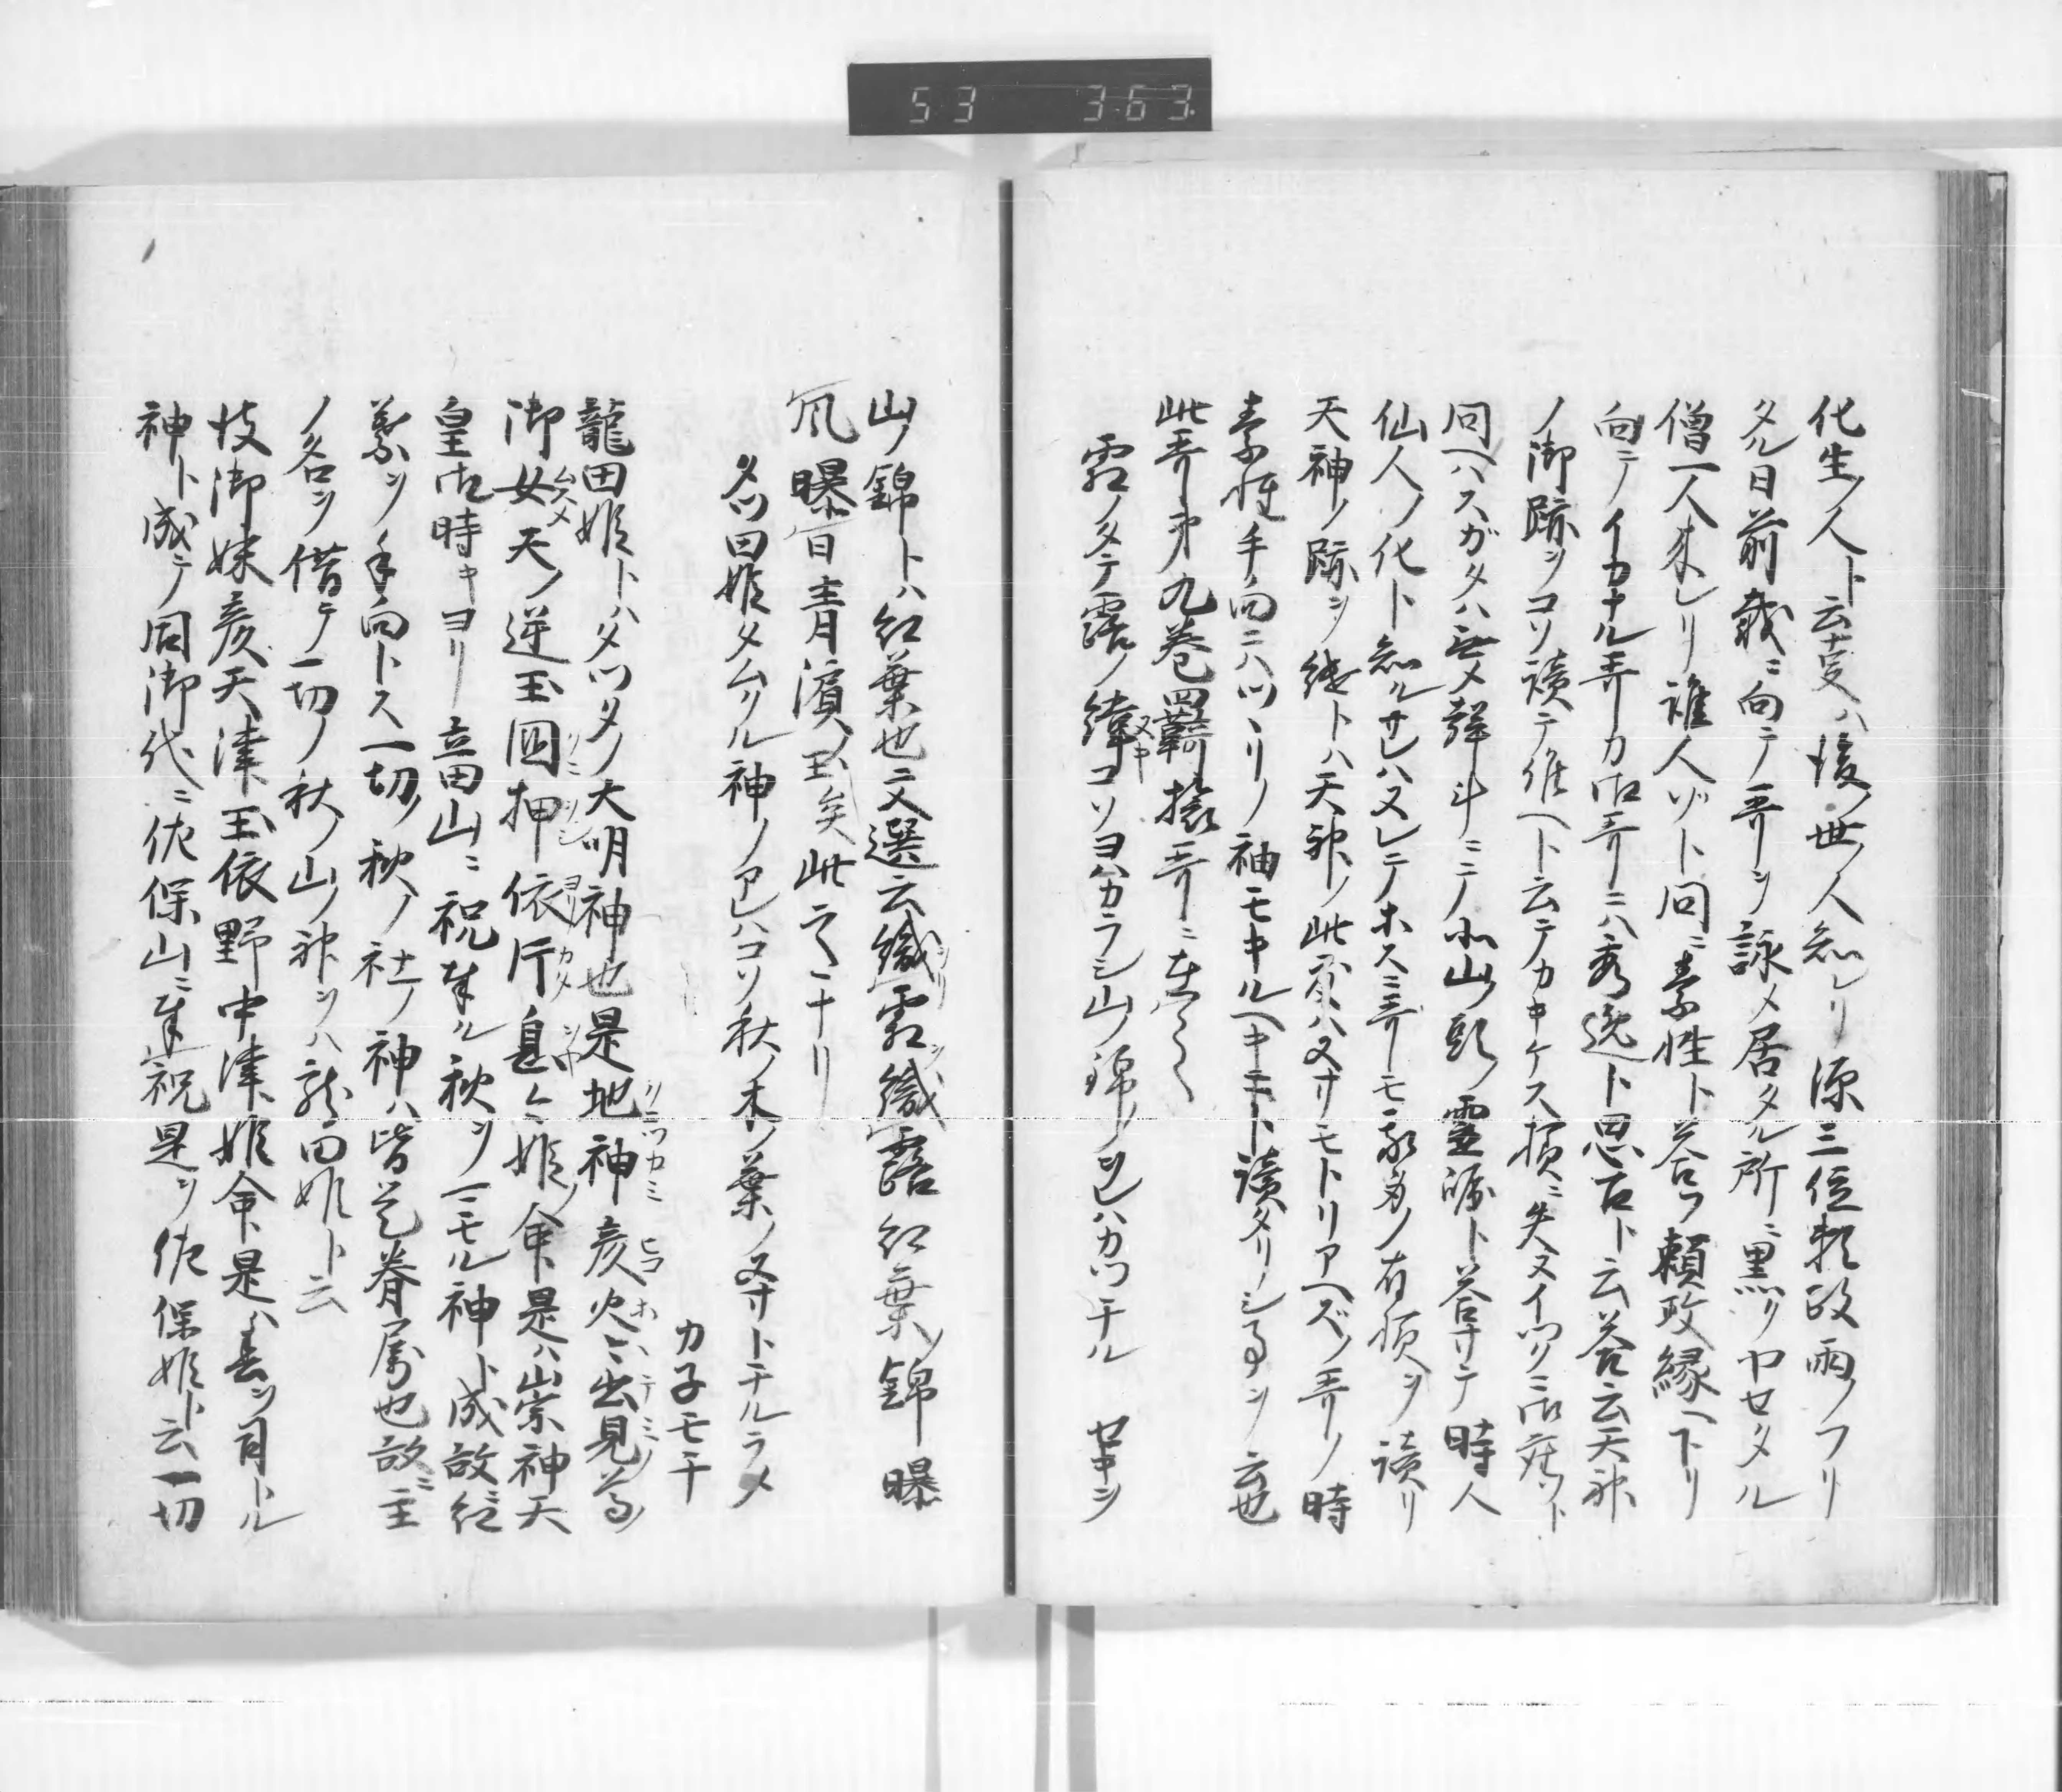 53 363
化生ノ人ト云支ハ後世ノ人知レリ源三位頼政雨ノフリ
タル日前栽ニ向テ哥ヲ詠メ居タル所ニ黒クヤセタル
僧一人来レリ誰人ゾト問ニ素性ト答フ頼政縁ヘ下リ
向テイカナル哥カ御哥ニハ秀逸ト思召ト云答云天神
ノ御跡ヲコソ讀テ候ヘト云テカキケス様ニ失ヌイツクニ御座ソト
問ヘハスガタハ無メ聲斗ニテ小山ノ頭霊崛ト答ヌサテ時人
仙人ノ化ト知ルサレハヌレテホスニ哥モ我身ノ有様ヲ讀リ
天神ノ跡ヲ継トハ天神ノ此度ハヌサモトリアヘズノ哥ノ時
素性手向ニハツヽリノ袖モキルヘキニト讀タリシ事ヲ云也
此哥第九巻羇旅哥ニ在之
霜ノタテ露ノ緯コソヨハカラシ山ノ錦ノヲレハカツチル セキヲ
山ノ錦トハ紅葉也文選云織霜織露紅葉ノ錦曝
風曝百青濱玉矣此之ナリ
タツ田姫タムクル神ノアレハコソ秋ノ木ノ葉ノヌサトチルラメ
カネモチ
龍田姫トハタツタノ大明神也是地神彦火々出見尊ノ
御女天ノ逆玉國押依片息々姫ノ命是ハ崇神天
皇御時キヨリ立田山ニ祝奉ル秋ヲ守ル神ト成故紅
葉ヲ手向トス一切ノ秋ノ社ノ神ハ皆是眷属也故ニ主
ノ名ヲ借テ一切ノ秋ノ山ノ神ヲハ龍田姫ト云
彼御妹彦天津玉依野中津姫命是ハ春ヲ司トル
神ト成テ同御代ニ佐保山ニ奉祝是ヲ佐保姫ト云一切